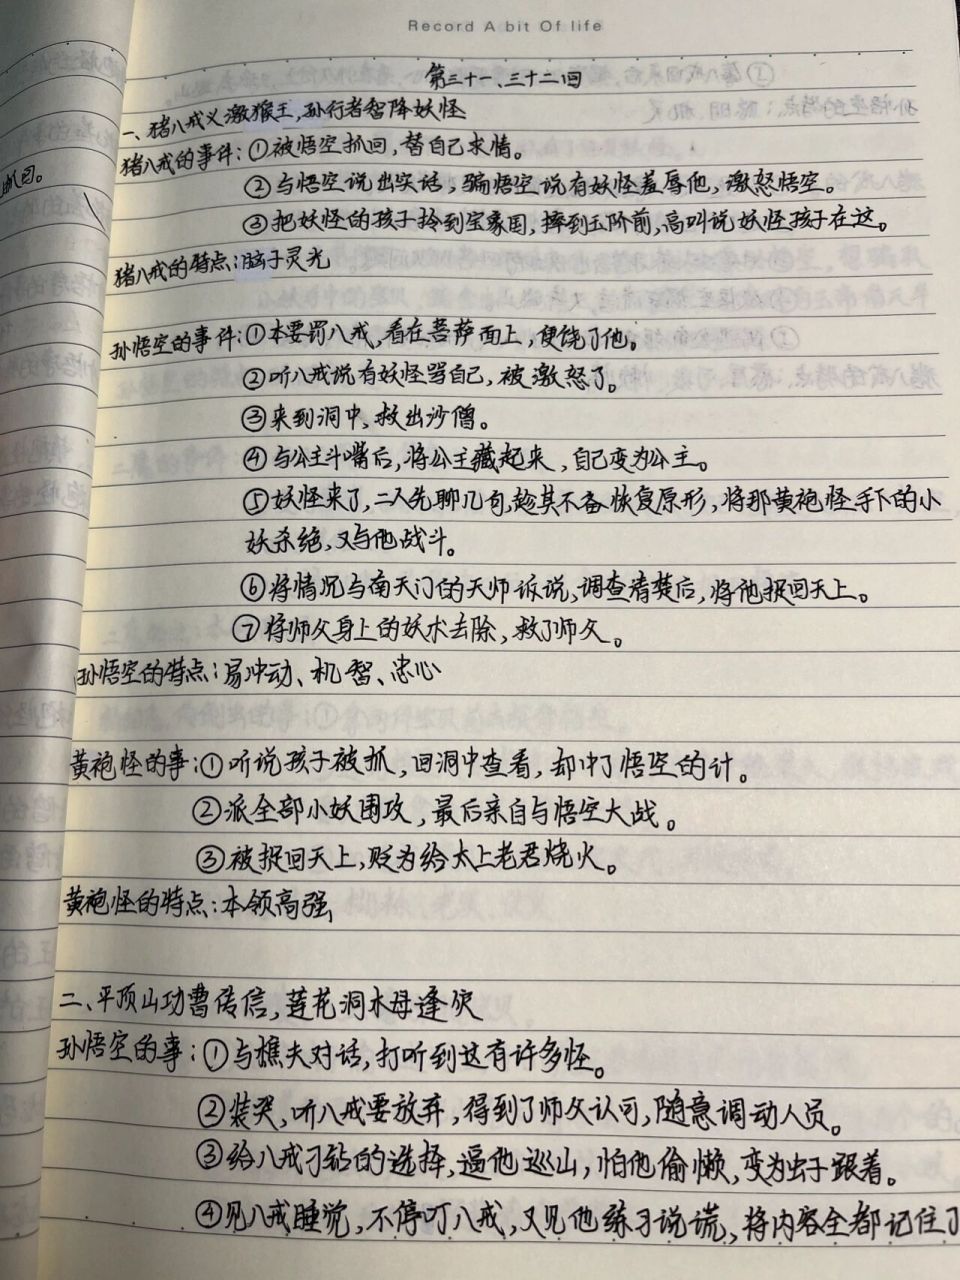 Record A bit Of life
第三十一、三十二回
一、猪八戒义激猴王,孙行者智降妖怪
猪八戒的事件:①被悟空抓回,替自己求情。
②与悟空说出实话,骗悟空说有妖怪羞辱他,激怒悟空。
③把妖怪的孩子拎到宝象国,摔到玉阶前,高叫说妖怪孩子在这。
猪八戒的特点:脑子灵光
孙悟空的事件:①本要罚八戒,看在菩萨面上,便饶了他。
②听八戒说有妖怪骂自己,被激怒了。
③来到洞中,救出沙僧。
④与公主斗嘴后,将公主藏起来,自己变为公主。
⑤妖怪来了,二人先聊几句,趁其不备恢复原形,将那黄袍怪手下的小
妖杀绝,又与他战斗。
⑥将情况与南天门的天师诉说,调查清楚后,将他捉回天上。
⑦将师父身上的妖术去除,救了师父。
孙悟空的特点:易冲动、机智、忠心
黄袍怪的事:①听说孩子被抓,回洞中查看,却中了悟空的计。
②派全部小妖围攻,最后亲自与悟空大战。
③被捉回天上,贬为给太上老君烧火。
黄袍怪的特点:本领高强,
二、平顶山功曹传信,莲花洞木母逢灾
孙悟空的事:①与樵夫对话,打听到这有许多怪。
②装哭,听八戒要放弃,得到了师父认可,随意调动人员。
③给八戒刁钻的选择,逼他巡山,怕他偷懒,变为虫子跟着。
④见八戒睡觉,不停叮八戒,又见他练习说谎,将内容全都记住了
抓回。